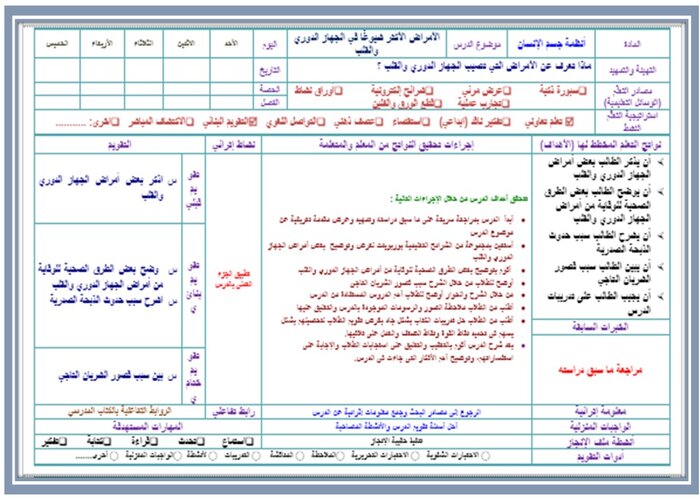 المادة
أنظمة جسم الإنسان
موضوع الدرس
الأمراض الأكثر شيوعًا في الجهاز الدوري والقلب
اليوم
الأحد
الاثنين
الثلاثاء
الأربعاء
الخميس
التهيئة والتمهيد
ماذا تعرف عن الأمراض التي تصيب الجهاز الدوري والقلب ؟
التاريخ
مصادر التعلم (الوسائل التعليمية)
سبورة ذكية
عرض مرئي
شرائح الكترونية
أوراق نشاط
تجارب عملية
قطع الورق والفلين
الحصة
الفصل
استراتيجية التعلم النشط
تعلم تعاوني
تفكير ناقد (ابداعي)
استقصاء
عصف ذهني
التواصل اللغوي
التقويم البنائي
الاكتشاف المباشر
أخرى: ...........
نواتج التعلم المخطط لها (الأهداف)
إجراءات تحقيق النواتج من المعلم والمتعلمة
نشاط إثرائي
التقويم
أن يذكر الطالب بعض أمراض الجهاز الدوري والقلب
أن يوضح الطالب بعض الطرق الصحية للوقاية من أمراض الجهاز الدوري والقلب
أن يشرح الطالب سبب حدوث الذبحة الصدرية
أن يبين الطالب سبب قصور الشريان التاجي
أن يجيب الطالب على تدريبات الدرس
الخبرات السابقة
مراجعة ما سبق دراسته
تتحقق أهداف الدرس من خلال الإجراءات التالية :
أبدأ الدرس بمراجعة سريعة على ما سبق دراسته وتمهيد وعرض مقدمة تعريفية عن موضوع الدرس
أستعين بمجموعة من الشرائح التعليمية بوربوينت لعرض وتوضيح بعض أمراض الجهاز الدوري والقلب
أقوم بتوضيح بعض الطرق الصحية للوقاية من أمراض الجهاز الدوري والقلب
أوضح للطلاب من خلال الشرح سبب قصور الشريان التاجي
من خلال الشرح والحوار أوضح للطلاب أهم الدروس المستفادة من الدرس
أطلب من الطلاب ملاحظة الصور والرسومات الموجودة بالدرس والتعليق عليها
أطلب من الطلاب حل تدريبات الكتاب بشكل جاد بغرض تقويم الطلاب لتحصيلهم بشكل يسهم في تحديد نقاط القوة ونقاط الضعف والعمل على علاجها.
بعد شرح الدرس أقوم بالتعقيب والتعليق على استجابات الطلاب والإجابة على استفساراتهم، وتوضيح أهم الأفكار التي جاءت في الدرس.
تطبيق الجزء العملي بالدرس
تقويم قبلي
س اذكر بعض أمراض الجهاز الدوري والقلب
تقويم بنائي
س وضح بعض الطرق الصحية للوقاية من أمراض الجهاز الدوري والقلب
س اشرح سبب حدوث الذبحة الصدرية
تقويم ختامي
س بين سبب قصور الشريان التاجي
معلومة إثرائية
الرجوع إلى مصادر البحث وجمع معلومات إثرائية عن الدرس
رابط تفاعلي
الروابط التفاعلية بالكتاب المدرسي
الواجبات المنزلية
أحل أسئلة تقويم الدرس والأنشطة المصاحبة
المهارات المستهدفة
أنشطة ملف الإنجاز
تغذية حقيبة الانجاز
استماع
تحدث
قراءة
كتابة
تفكير
أدوات التقويم
الاختبارات الشفوية
الاختبارات التحريرية
الملاحظة
المناقشة
التدريبات
الأنشطة
الواجبات المنزلية
أخرى......